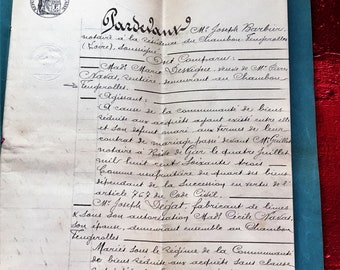 Pardevant Me Joseph Barbier
notaire à la résidence du Chambon Feugerolles
(Loire), soussigné
Ont Comparu:
Made Marie veuve de Mr
rentière, demeurant au Chambon
Feugerolles
Agissant:
A cause de la communauté de biens
réduite aux acquêts ayant existé entre elle
et son défunt mari aux termes de leur
contrat de mariage passé devant Me
notaire à le quatre juillet
mil huit cent soixante trois
Comme usufruitière du quart des biens
dépendant de la Succession en vertu de l'
article 767 du Code Civil
Mr Joseph fabricant de limes
& sous son autorisation Made Cécile
son épouse, demeurant ensemble au Chambon
Feugerolles
Mariés sous le Régime de la Communauté
de biens réduite aux acquêts sans clause